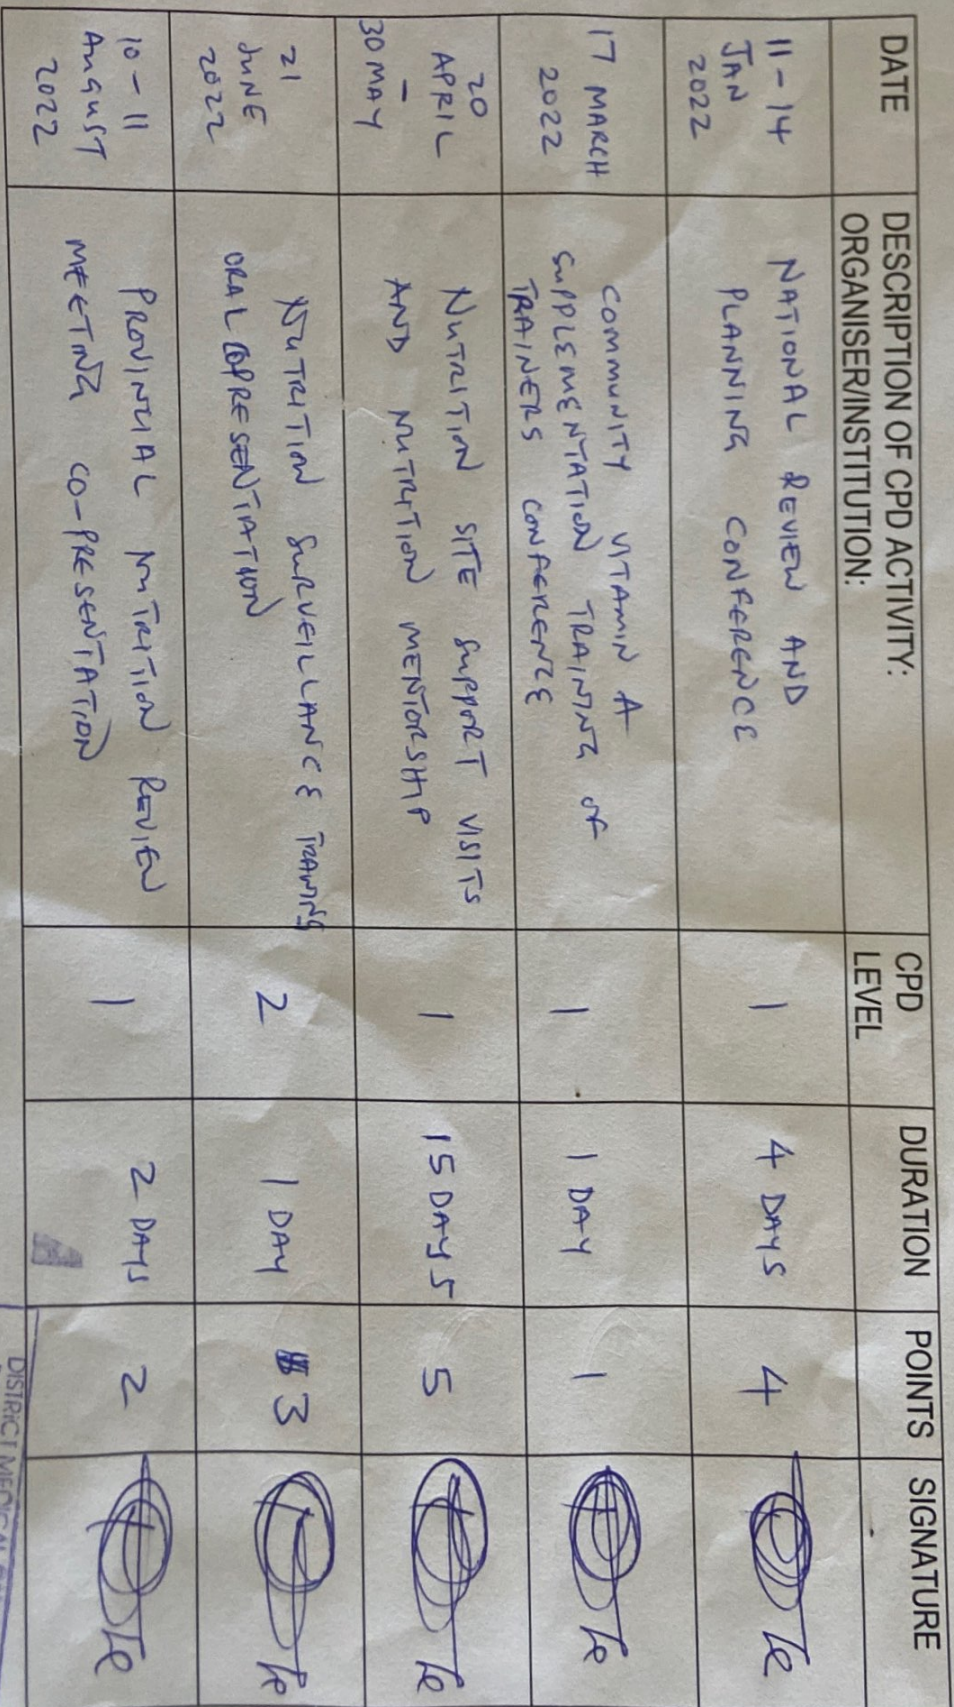 DATE
DESCRIPTION OF CPD ACTIVITY:
ORGANISER/INSTITUTION:
CPD
LEVEL
DURATION
POINTS
SIGNATURE
11-14
JAN
2022
NATIONAL REVIEW AND
PLANNING CONFERENCE
1
4 DAYS
4
17 MARCH
2022
COMMUNITY VITAMIN A
SUPPLEMENTATION TRAINING OF
TRAINERS CONFERENCE
1
1 DAY
1
20
APRIL
-
30 MAY
NUTRITION SITE SUPPORT VISITS
AND NUTRITION MENTORSHIP
1
15 DAYS
5
21
JUNE
2022
NUTRITION SURVEILLANCE TRAINING
ORAL PRESENTATION
2
1 DAY
3
10-11
August
2022
PROVINCIAL NUTRITION REVIEW
MEETING CO-PRESENTATION
1
2 DAYS
2
DISTRICT MEDICAL